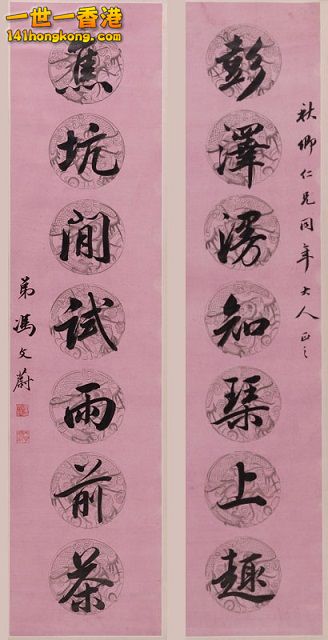 一世一香港
141hongkong.com
秋卿仁兄同年大人正之
彭澤漫知琴上趣
焦坑閒試雨前茶
弟馮文蔚